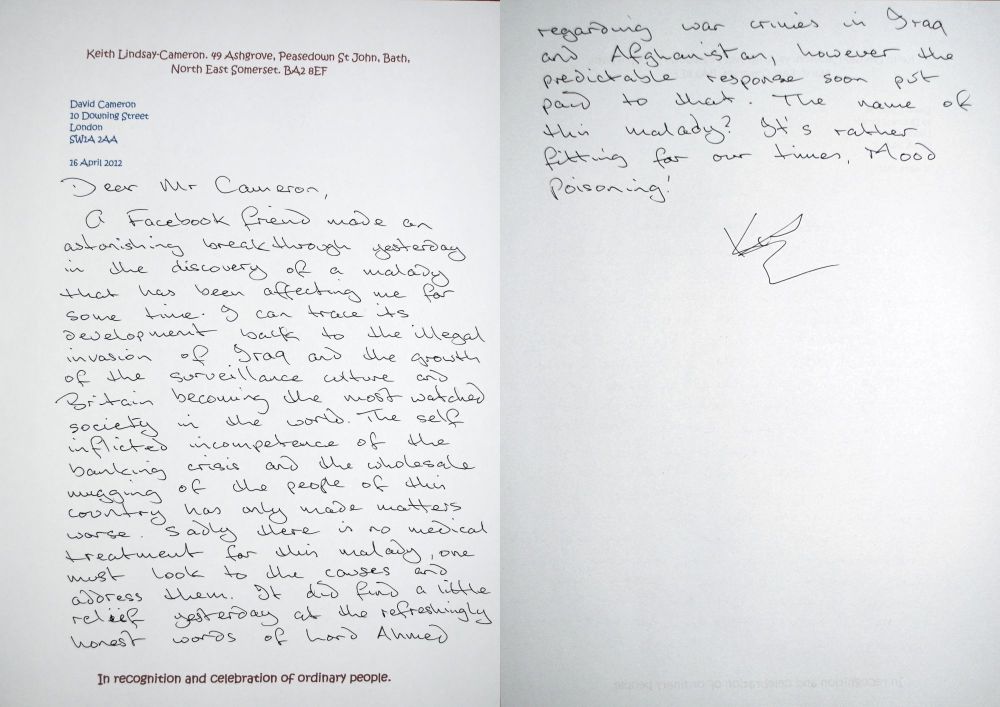 Keith Lindsay-Cameron. 49 Ashgrove, Peasedown St John, Bath,
North East Somerset. BA2 8EF
David Cameron
10 Downing Street
London
SW1A 2AA
16 April 2012
Dear Mr Cameron,
A Facebook friend made an
astonishing breakthrough yesterday
in the discovery of a malady
that has been affecting me for
some time. I can trace its
development back to the illegal
invasion of Iraq and the growth
of the surveillance culture and
Britain becoming the most watched
society in the world. The self
inflicted incompetence of the
banking crisis and the wholesale
mugging of the people of this
country has only made matters
worse. Sadly there is no medical
treatment for this malady, one
must look to the causes and
address them. It did find a little
relief yesterday at the refreshingly
honest words of Lord Ahmed
In recognition and celebration of ordinary people.
regarding war crimes in Iraq
and Afghanistan, however the
predictable response soon put
paid to that. The name of
this malady? It's rather
fitting for our times, Mood
Poisoning!